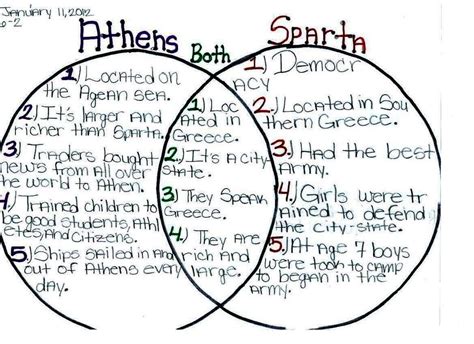 January 11, 2012
6-2
Athens
Both
Sparta
1.) Located on
the Agean Sea.
2.) It's larger and
richer than Sparta.
3.) Traders bought
news from all over
the world to Athen.
4.) Trained children to
be good students, Athl
etes, And Citizens.
5.) Ships sailed in And
out of Athens every
day.
1.) Loc
Ated in
Greece.
2.) It's A city
state.
3.) They Speak
Greece.
4.) They are
rich and
large.
1.) Democr
ACY
2.) Located in Sou
thern Greece.
3.) Had the best
Army.
4.) Girls were tr
Ained to defend
the city-state.
5.) At Age 7 boys
were took to camp
to begann in the
Army.